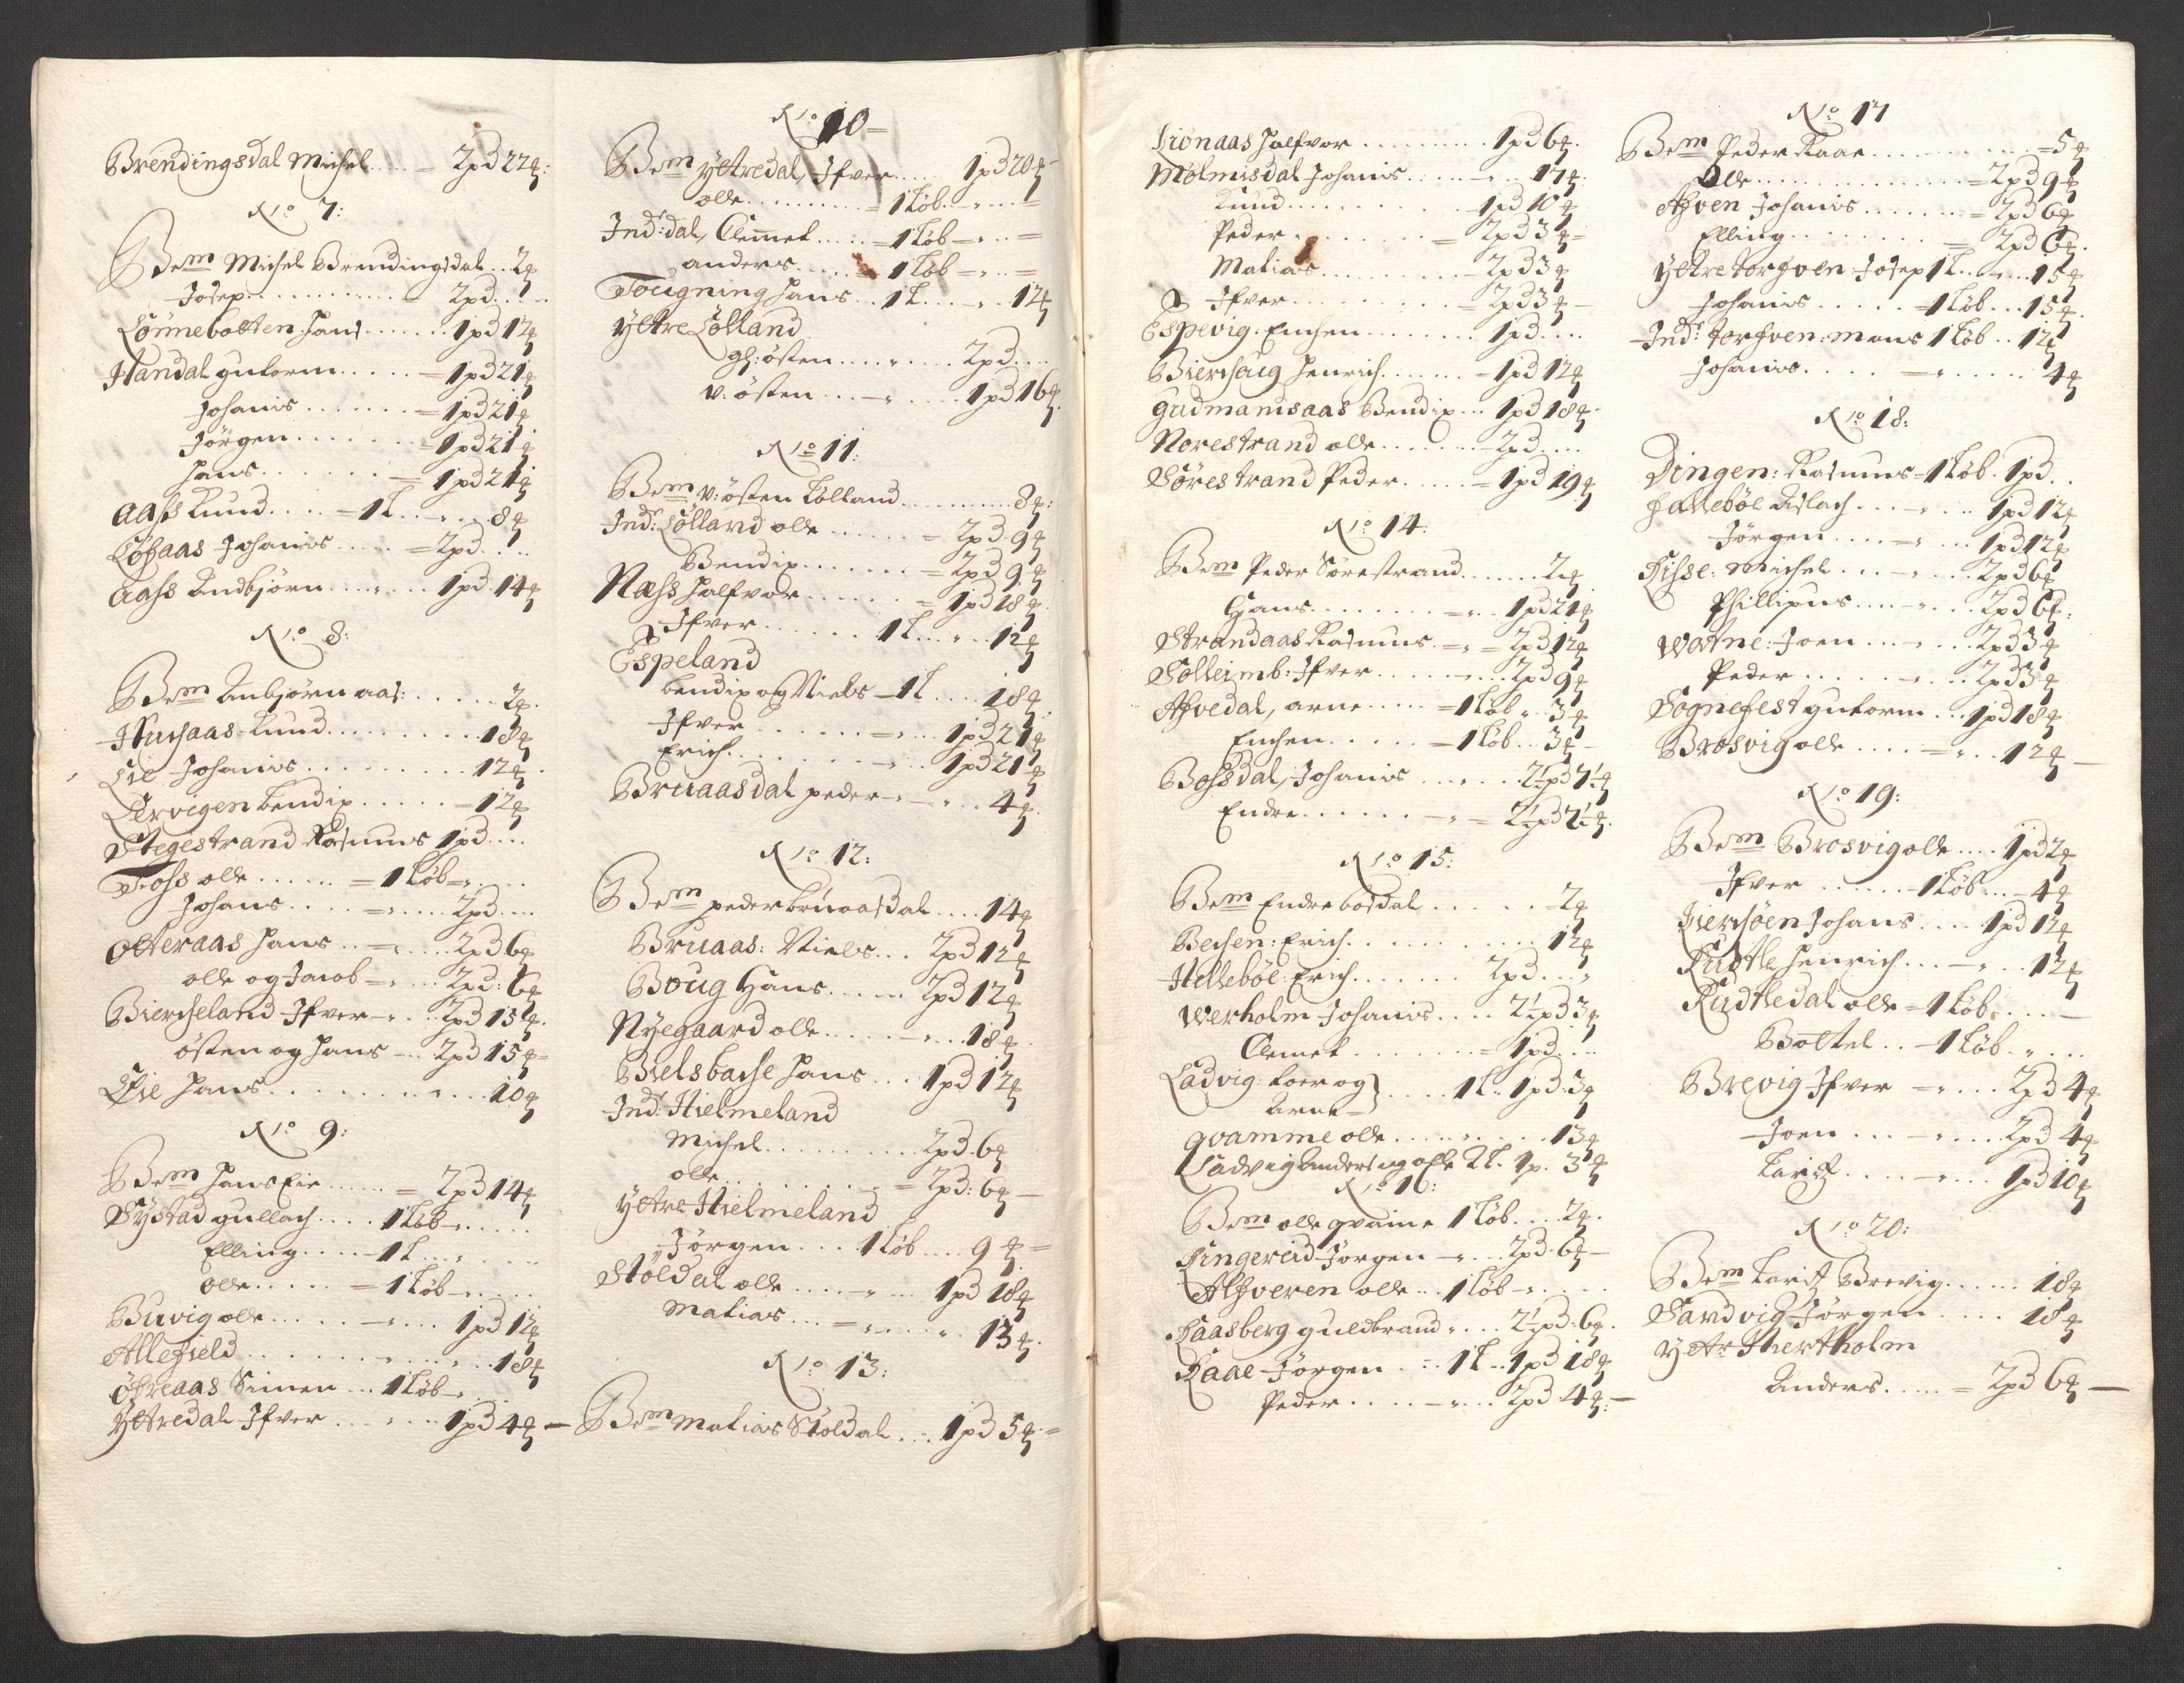 Brendingsdal Michel .... = 2pd 22 ₰:
No 7:
Bem Michel Brendingsdal .. 2 ₰
Josep ............ 2pd ...
Lönnebotten Hans ...... 1pd 12 ₰
Handal guttorm ..... = 1pd 21 ₰
Johanis ...... = 1pd 21 ₰
Jörgen ...... = 1pd 21 ₰
Hans ...... = 1pd 21 ₰
Aass Knud .... = 1 L .. „ .. 8 ₰
Löfaas Johanis ..... = 2pd ....
Aass Andbjörn .... „ ... 1pd 14 ₰
No 8:
Bem Anbjörn aas: ..... 2 ₰.
Huusaas Knud ......... 18 ₰
Lie Johanis ......... 12 ₰.
Lervigen bendix ..... = 12 ₰
Stegestrand Rasmus 1pd ....
Foss olle ...... = 1 Løb = „ ....
Johans .... = „ .... 2pd ....
Otteraas Hans .. = „ .... 2pd 6 ₰
olle og Jacob = „ ... 2pd: 6 ₰
Biercheland Ifver = „ .. 2pd 15 ₰.
östen og Hans = .. 2pd 15 ₰ =
Eie Hans ........ „ .. 10 ₰
No 9:
Bem Hans Eie ..... = 2pd 14 ₰
Systad gullach .... 1 Løb = „ ....
Elling ..... 1 L ... „ ....
Olle ..... = 1 Løb = „ ....
Buvig olle ..... = „ ... 1pd 12 ₰
Allefield ......... „ .. 18 ₰
öfreaas Simen ... 1 Løb = „ ..
Yttredal Ifver ... „ ... 1pd 4 ₰ —
No 10 =
Bem yttredal, Ifver ..... 1pd 20 ₰ =
olle .......... = 1 Løb .. „ .. =
Indr: dal, Clemet ..... = 1 Løb = „ .. =
anders ..... 1 Løb = „ .. =
Tougning Hans .. 1 L ... „ .. 12 ₰
Yttre Lölland
gl: östen .... „ .... 2pd ....
v: östen ... „ .... 1pd 16 ₰.
No 11:
Bem v: östen Lölland .......... 8 ₰:
Indr: Lölland olle ...... = 2pd 9 ₰
Bendix ...... = 2pd 9 ₰
Næss Halfvor ...... = 1pd 18 ₰
Ifver ...... 1 L ... „ .. 12 ₰
Espeland
bendix og Niels = 1 L .... 18 ₰
Ifver ........ = „ ... 1pd 21 ₰
Erich ........ „ ... 1pd 21 ₰
Bruaasdal peder „ = „ .. 4 ₰.
No 12:
Bem peder bruaasdal .... 14 ₰
Bruaas: Niels ... 2pd 12 ₰
Boug Hans ..... 2pd 12 ₰
Nyegaard olle ..... „ .. 18 ₰
Bielsbache Hans ... 1pd 12 ₰
Indr: Hielmeland
Michel .......... 2pd. 6 ₰
olle .......... = 2pd: 6 ₰ —
Yttre Hielmeland
Jörgen .... 1 Løb .... 9 ₰ =
Stöldal olle .... = „ ... 1pd 18 ₰
Matias ... = „ .... 13 ₰.
No 13:
Bem Matias Stöldal ... 1pd 5 ₰ =
Lionaas Halfvor ......... 1pd 6 ₰.
Molmisdal Johanis ..... „ .. 17 ₰.
Knud ......... 1pd 10 ₰
Peder ......... = 2pd 3 ₰ =
Matias ......... 2pd 3 ₰
Ifver ......... = 2pd 3 ₰ —
Espevig. Enchen ........ 1pd ....
Bierchaug Henrich ....... = 1pd 12 ₰
gudmandsaas Bendix ... 1pd 18 ₰.
Norestrand olle ....... = 2pd ....
Sörestrand Peder ..... = 1pd 19 ₰
No 14:
Bem Peder Sörestrand ....... 2 ₰
Hans ........ = „ .. 1pd 21 ₰
Strandaas Rasmus = „ = 2pd 12 ₰
Solleimb: Ifver ..... = ... 2pd 9 ₰
Afvedal, arne ..... = 1 Løb „ 3 ₰
Enchen ..... = 1 Løb .. 3 ₰ —
Bossdal, Johanis ... „ .. 2½pd 7½ ₰
Endre ...... = „ = 2½pd 7½ ₰.
No 15:
Bem Endre bosdal ..... - 2 ₰
Bechen: Erich ......... 12 ₰
Hellebøl: Erich ...... 2pd ... „
Werholm Johanis .... 2½pd 3 ₰
Clemet ....... = 1pd ....
Ladvig: Loer og
Arne } .... 1 L. 1pd. 3 ₰
qvamme olle ..... „ ... 13 ₰
Ladvig Anders og olle 2 L. 1p. 3 ₰
No 16:
Bem olle qvame 1 Løb .... 2 ₰.
Lingereid Jörgen = „ .. 2pd. 6 ₰ —
Alfveren olle .. 1 Løb = „ ...
Haasberg guldbrand „ ... 2½pd: 6 ₰.
Kaae Jörgen ... 1 L .. 1pd 18 ₰
Peder .... = „ ... 2pd 4 ₰. —
No 17
Bem Peder Kaae .......... = 5 ₰
Olle ............. = 2pd 9 ₰
Afven Johanis ....... = 2pd 6 ₰
Elling ......... = 2pd 6 ₰.
Yttre torfven Josep 1 L ... „ ... 15 ₰
Johanis ..... = 1 Løb ... 15 ₰.
Indr: torfven: Mons 1 Løb .. 12 ₰
Johanis ..... = „ ..... 4 ₰
No 18:
Dingen: Rasmus = 1 Løb. 1pd ..
Hallebøl Aslach ... = „ .. 1pd 12 ₰
Jörgen .... = „ ... 1pd 12 ₰
Risse: Michel ... = „ ... 2pd 6 ₰
Phillipus .... = „ ... 2pd 6 ₰:
Watne: Joen .... = „ ... 2pd 3 ₰
Peder ..... = „ ... 2pd 3 ₰
Sognefest guttorm ... 1pd 18 ₰
Brosvig olle .... = „ ... 12 ₰ —
No 19:
Bem Brosvig olle .... 1pd 2 ₰
Ifver ...... = 1 Løb ... = 4 ₰
Kierchøen Johans .... 1pd 12 ₰
Rudtle Henrich .... = „ ... 12 ₰
Rudtledal olle = 1 Løb „ .... —
Boltel .. = 1 Løb . „ ...
Brevig Ifver = „ .... 2pd 4 ₰
Joen ... = „ .... 2pd 4 ₰
Larits .... = „ ... 1pd 10 ₰
No 20:
Bem Larits Brevig ...... 18 ₰
Sandvig Jörgen ..... 18 ₰
Yttr Shertholm
Anders ..... = 2pd 6 ₰ —